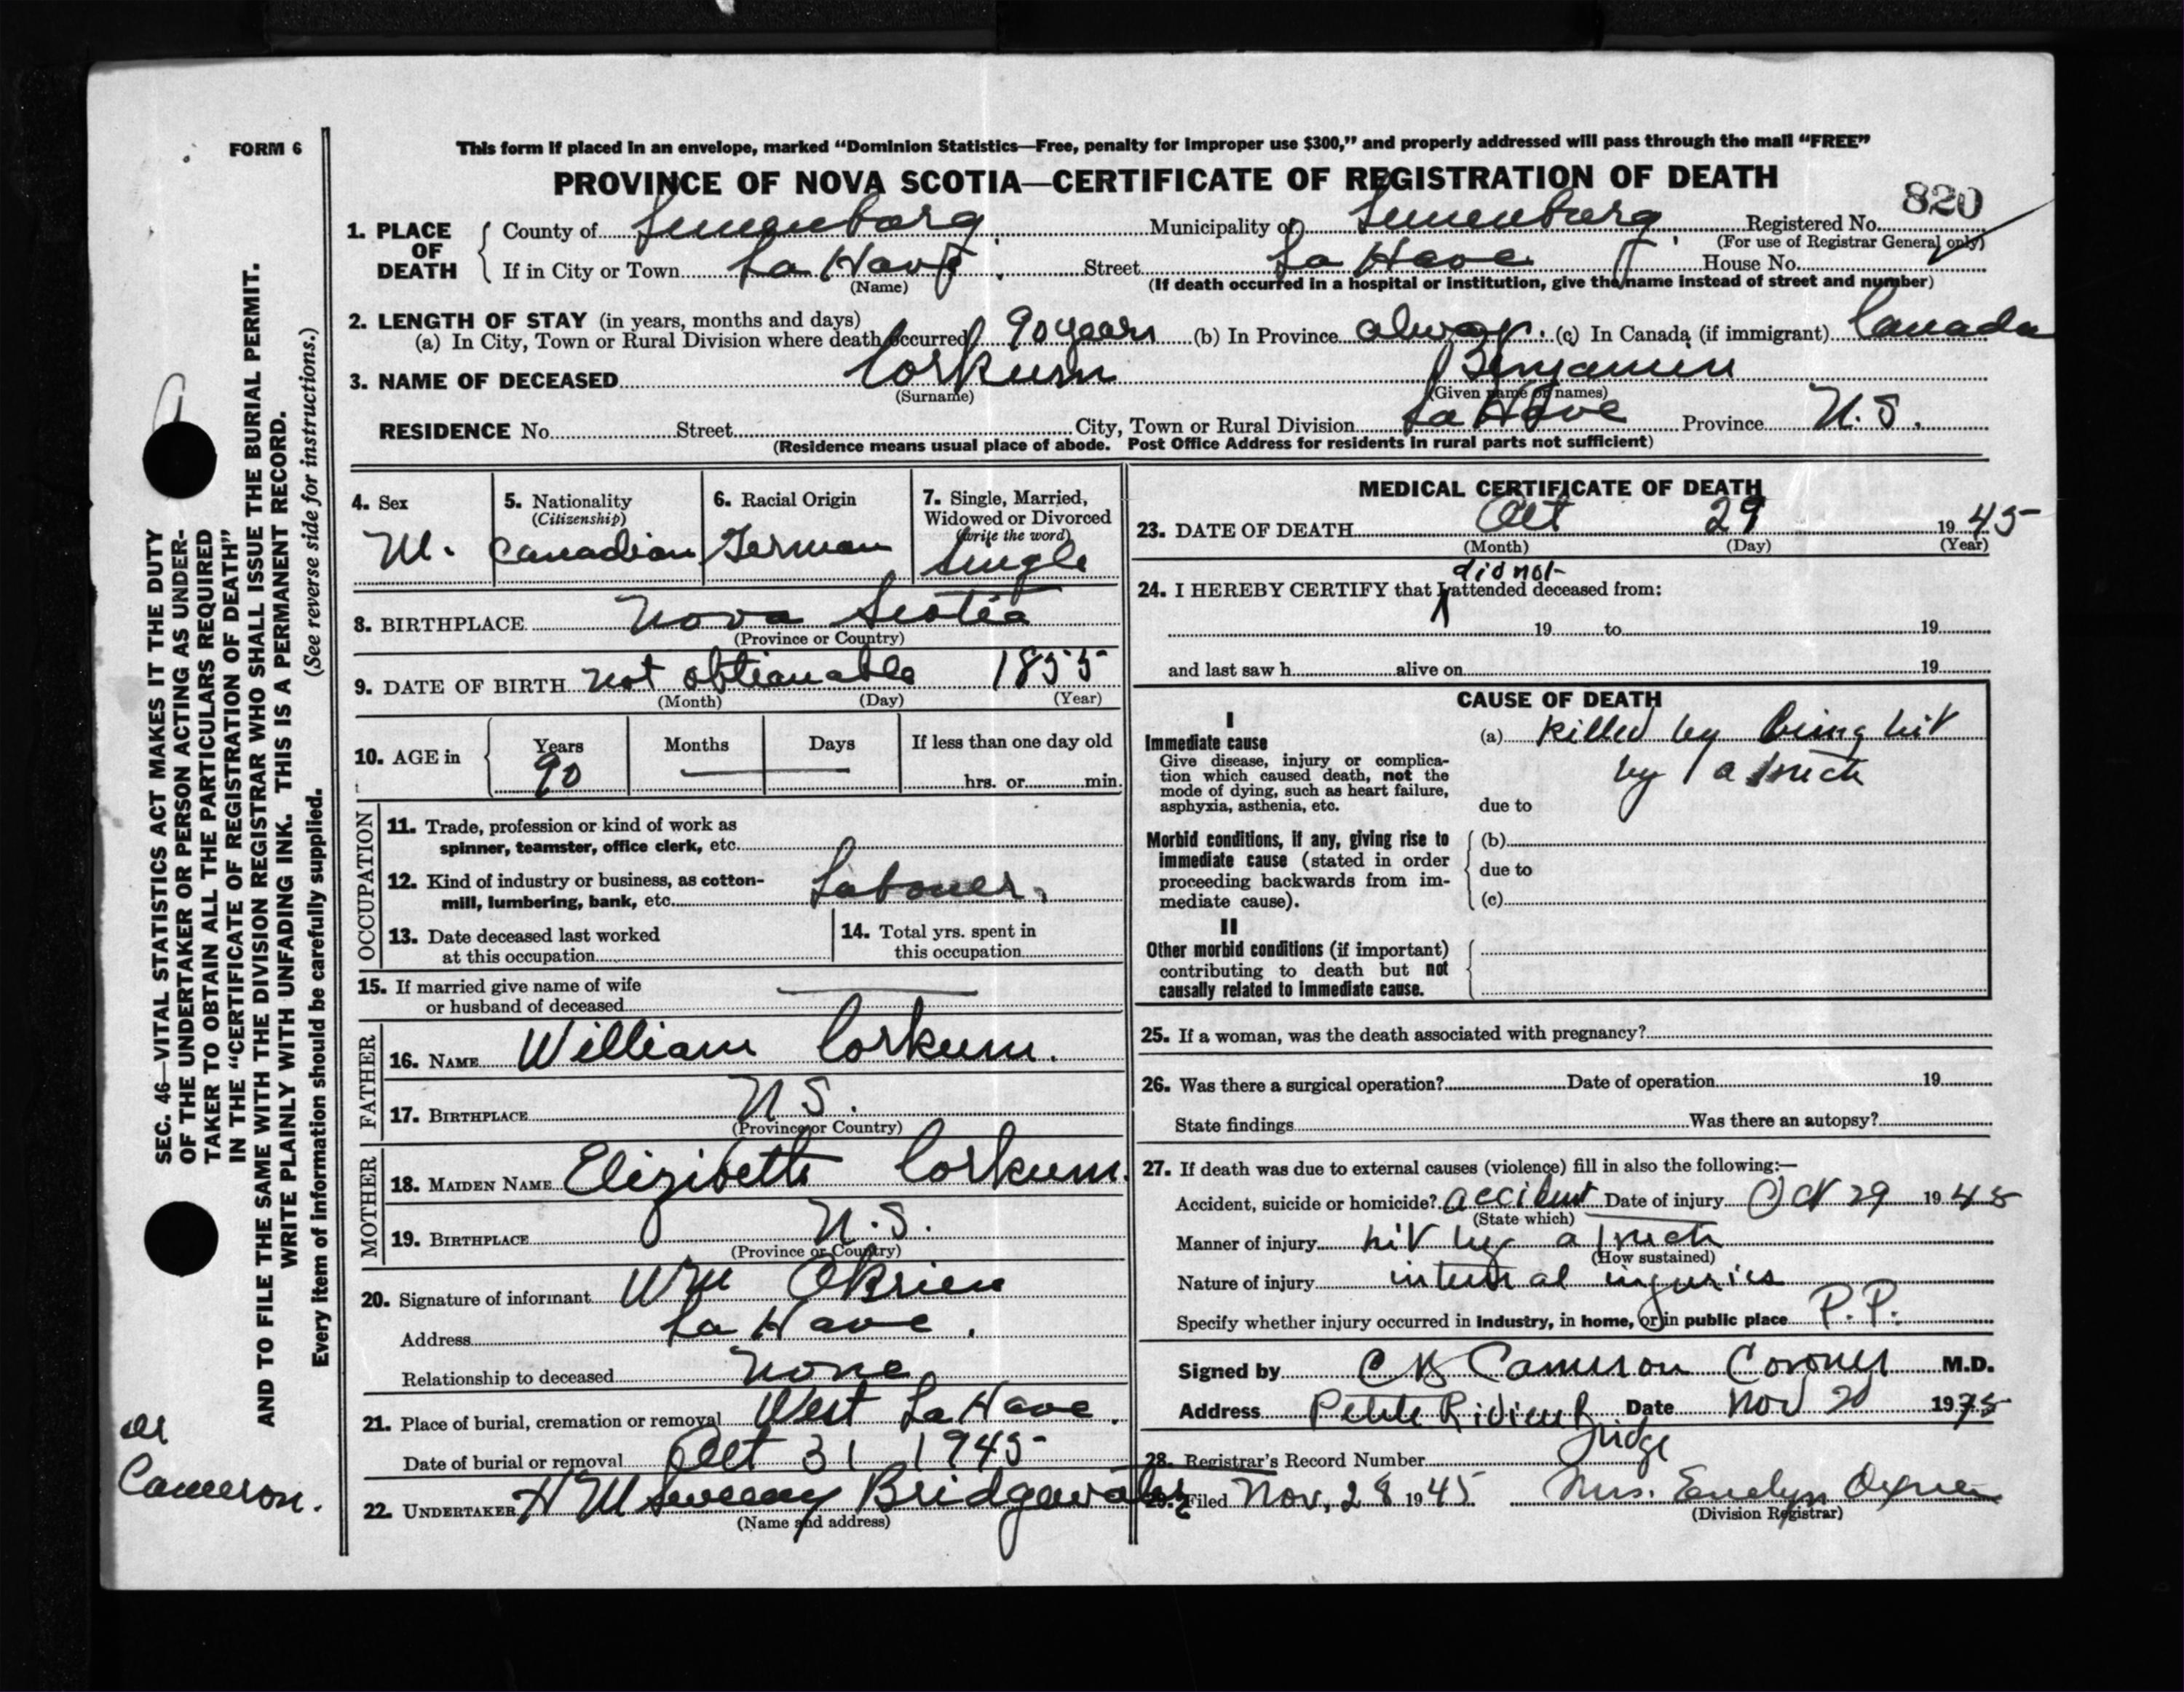 FORM 6
This form if placed in an envelope, marked “Dominion Statistics—Free, penalty for improper use $300,” and properly addressed will pass through the mail “FREE”
PROVINCE OF NOVA SCOTIA—CERTIFICATE OF REGISTRATION OF DEATH
820
1. PLACE OF DEATH { County of Lunenburg. Municipality of Lunenburg. Registered No.
(For use of Registrar General only)
If in City or Town La Have. Street La Have House No.
(Name) (If death occurred in a hospital or institution, give the name instead of street and number)
2. LENGTH OF STAY (in years, months and days)
(a) In City, Town or Rural Division where death occurred 90 years (b) In Province always. (c) In Canada (if immigrant) Canada
3. NAME OF DECEASED Corkum Benjamin
(Surname) (Given name or names)
RESIDENCE No. Street City, Town or Rural Division La Have Province N.S.
(Residence means usual place of abode. Post Office Address for residents in rural parts not sufficient)
4. Sex M.
5. Nationality (Citizenship) Canadian
6. Racial Origin German
7. Single, Married, Widowed or Divorced (write the word) Single
8. BIRTHPLACE Nova Scotia
(Province or Country)
9. DATE OF BIRTH not obtianable 1855
(Month) (Day) (Year)
10. AGE in { Years Months Days If less than one day old
90 — hrs. or min.
OCCUPATION
11. Trade, profession or kind of work as
spinner, teamster, office clerk, etc.
12. Kind of industry or business, as cotton-
mill, lumbering, bank, etc. Labouer.
13. Date deceased last worked
at this occupation
14. Total yrs. spent in
this occupation
15. If married give name of wife
or husband of deceased —
FATHER
16. NAME William Corkum.
17. BIRTHPLACE N S.
(Province or Country)
MOTHER
18. MAIDEN NAME Elizibeth Corkum.
19. BIRTHPLACE N.S.
(Province or Country)
20. Signature of informant Wm OBrien
Address La Have.
Relationship to deceased None
21. Place of burial, cremation or removal West La Have.
Date of burial or removal Oct 31 1945
22. UNDERTAKER H M Sweeny Bridgewater
(Name and address)
MEDICAL CERTIFICATE OF DEATH
23. DATE OF DEATH Oct 29 1945
(Month) (Day) (Year)
did not
24. I HEREBY CERTIFY that I attended deceased from:
19 to 19
and last saw h alive on 19
CAUSE OF DEATH
I
Immediate cause
Give disease, injury or complica-
tion which caused death, not the
mode of dying, such as heart failure,
asphyxia, asthenia, etc.
(a) killed by being hit
by a truck
due to
Morbid conditions, if any, giving rise to
immediate cause (stated in order
proceeding backwards from im-
mediate cause).
(b)
due to
(c)
II
Other morbid conditions (if important)
contributing to death but not
causally related to immediate cause.
25. If a woman, was the death associated with pregnancy?
26. Was there a surgical operation? Date of operation 19
State findings Was there an autopsy?
27. If death was due to external causes (violence) fill in also the following:—
Accident, suicide or homicide? accident Date of injury Oct 29 1945
(State which)
Manner of injury hit by a truck
(How sustained)
Nature of injury internal injuries
Specify whether injury occurred in industry, in home, or in public place P.P.
Signed by C B Cameron Coroner M.D.
Address Petite Riviere Bridge Date Nov 20 1945
28. Registrar's Record Number
29. Filed Nov, 28 1945 Mrs. Evelyn
(Division Registrar)
SEC. 46—VITAL STATISTICS ACT MAKES IT THE DUTY
OF THE UNDERTAKER OR PERSON ACTING AS UNDER-
TAKER TO OBTAIN ALL THE PARTICULARS REQUIRED
IN THE “CERTIFICATE OF REGISTRATION OF DEATH”
AND TO FILE THE SAME WITH THE DIVISION REGISTRAR WHO SHALL ISSUE THE BURIAL PERMIT.
WRITE PLAINLY WITH UNFADING INK. THIS IS A PERMANENT RECORD.
Every item of information should be carefully supplied. (See reverse side for instructions.)
Dr
Cameron.